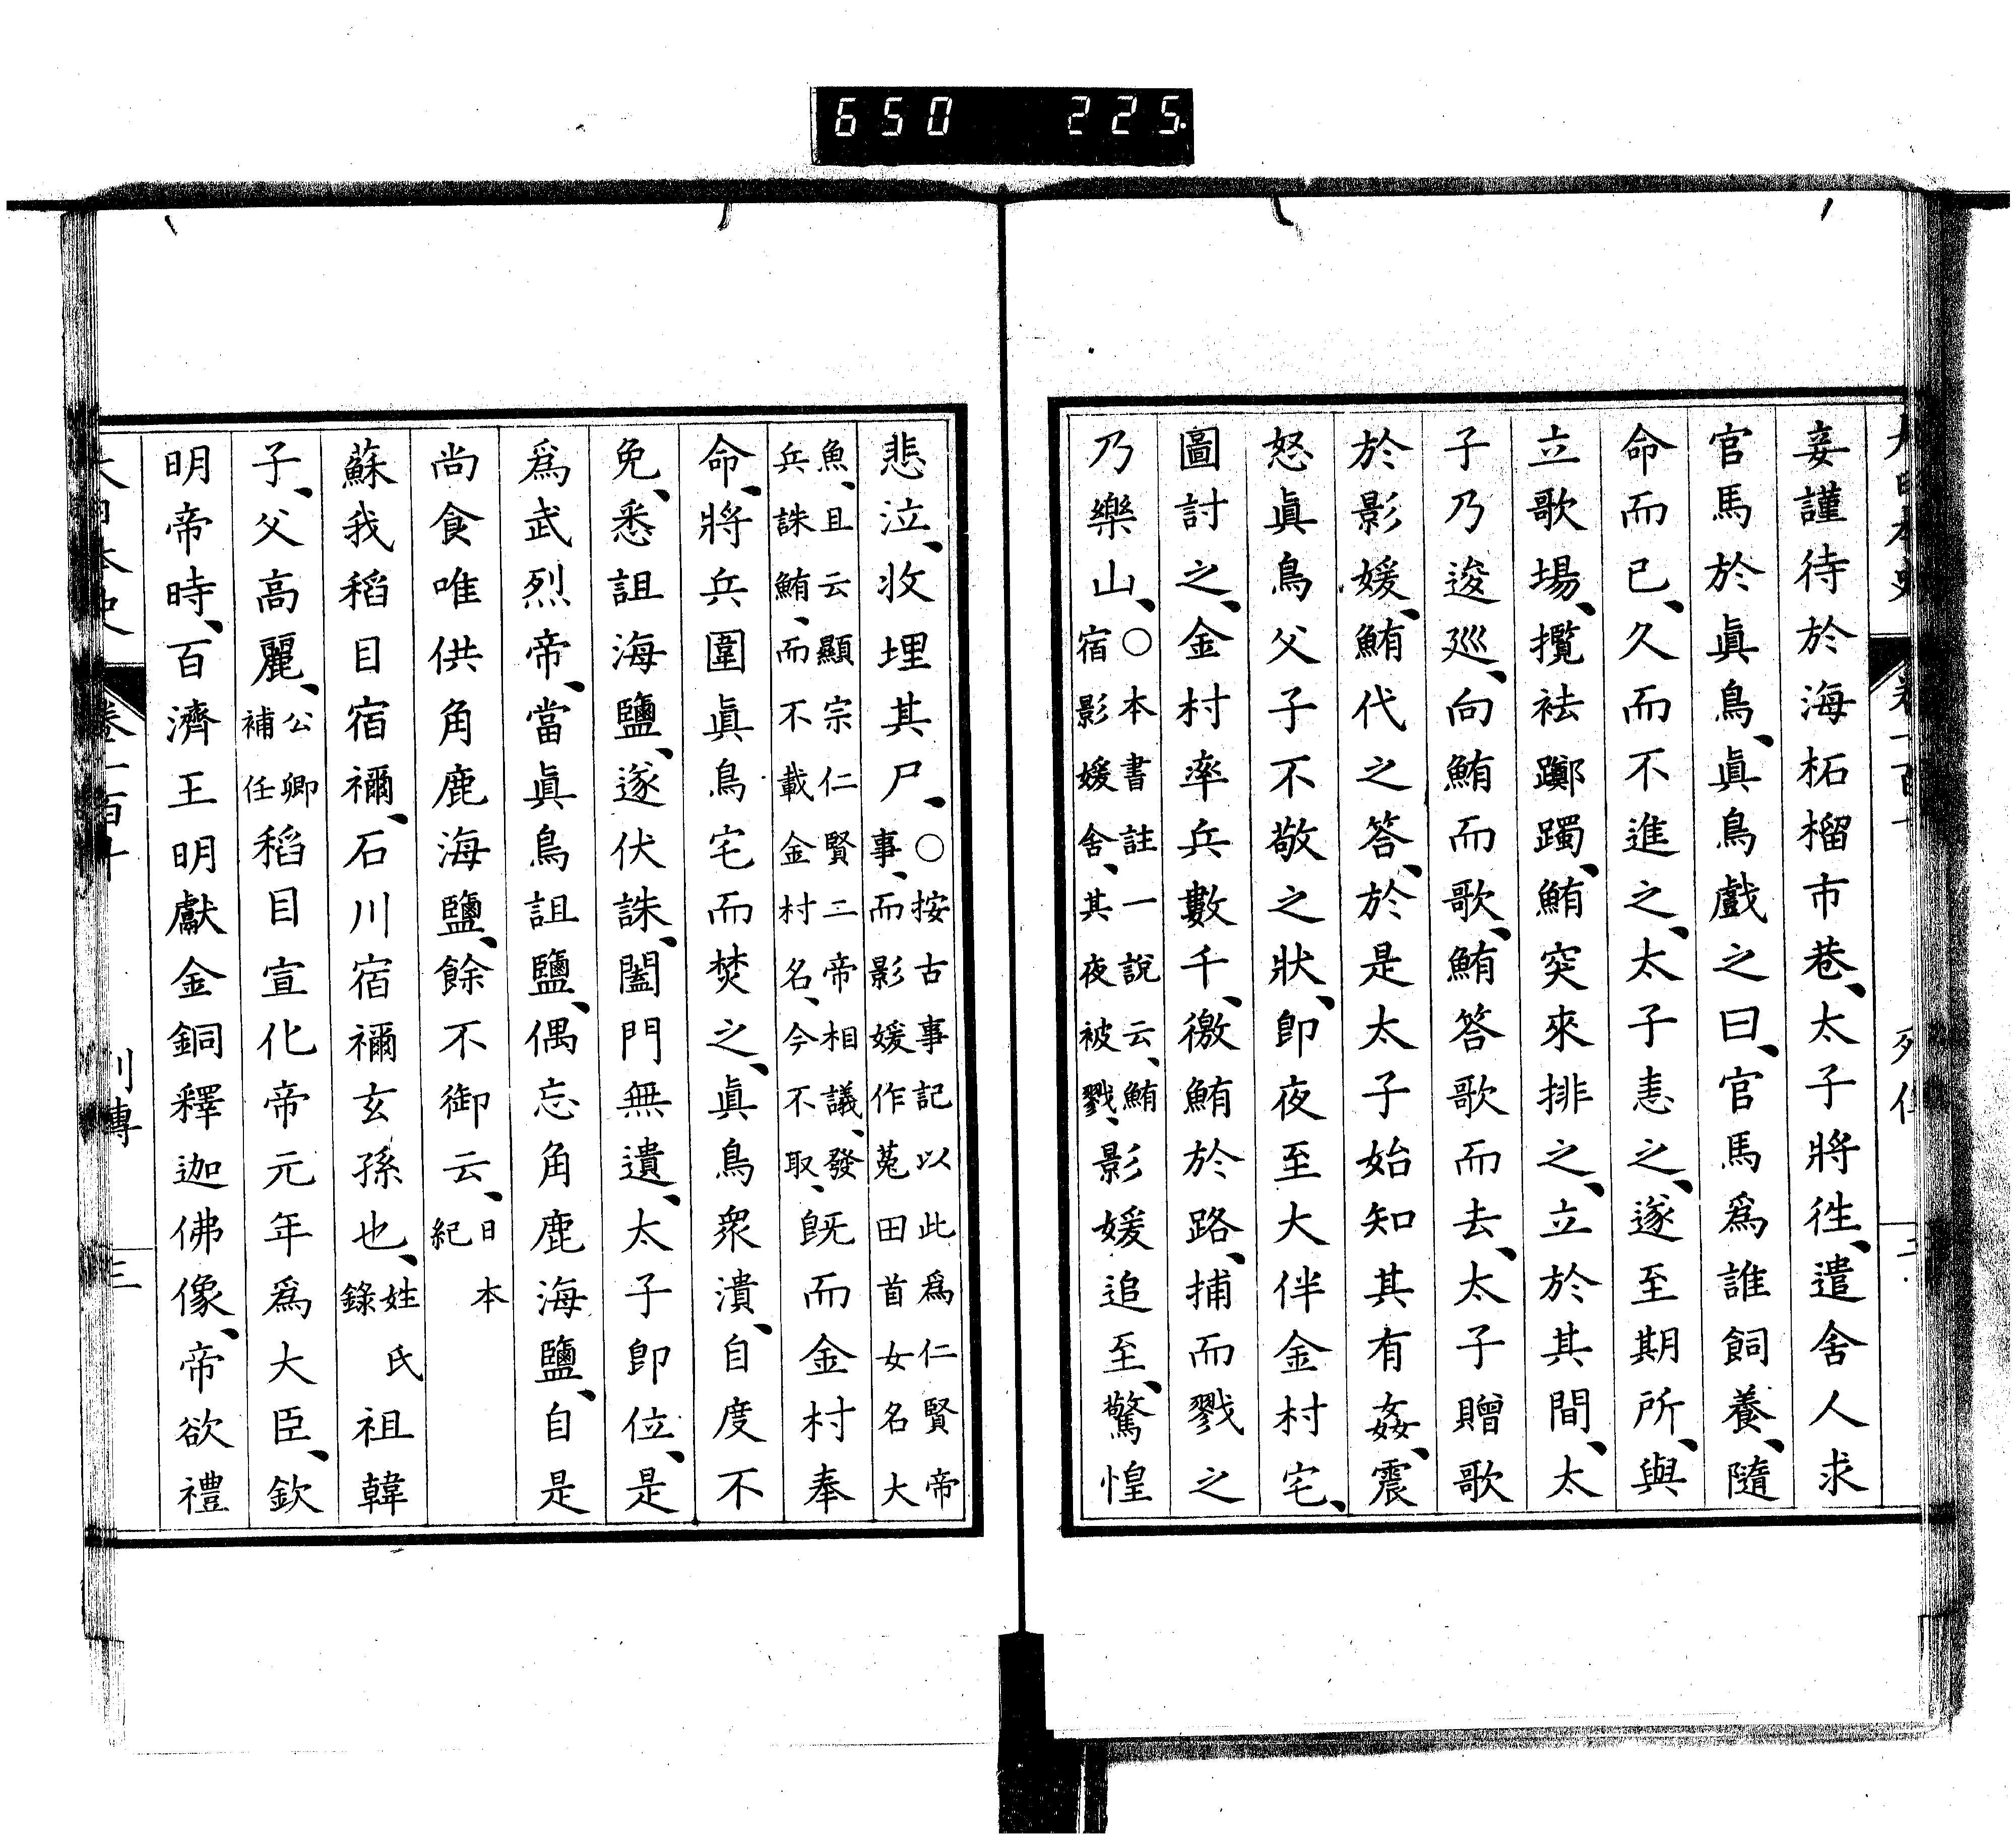 650 225.
妾謹待於海柘榴市巷、太子將徃、遣舍人求
官馬於眞鳥、眞鳥戲之曰、官馬爲誰飼養、隨
命而已、久而不進之、太子恚之、遂至期所、與
立歌場、攬袪躑躅、鮪突來排之、立於其間、太
子乃逡廵、向鮪而歌、鮪答歌而去、太子贈歌
於影媛、鮪代之答、於是太子始知其有姦、震
怒眞鳥父子不敬之狀、卽夜至大伴金村宅、
圖討之、金村率兵數千、徼鮪於路、捕而戮之
乃樂山、○本書註一說云、鮪宿影媛舍、其夜被戮、影媛追至、驚惶
悲泣、收埋其尸、○按古事記以此爲仁賢帝事、而影媛作菟田首女名大
魚、且云顯宗仁賢二帝相議、發兵誅鮪、而不載金村名、今不取、旣而金村奉
命、將兵圍眞鳥宅而焚之、眞鳥衆潰、自度不
免、悉詛海鹽、遂伏誅、闔門無遺、太子卽位、是
爲武烈帝、當眞鳥詛鹽、偶忘角鹿海鹽、自是
尚食唯供角鹿海鹽、餘不御云、日本紀
蘇我稻目宿禰、石川宿禰玄孫也、姓氏錄祖韓
子、父高麗、公卿補任稻目宣化帝元年爲大臣、欽
明帝時、百濟王明獻金銅釋迦佛像、帝欲禮
列傳
三